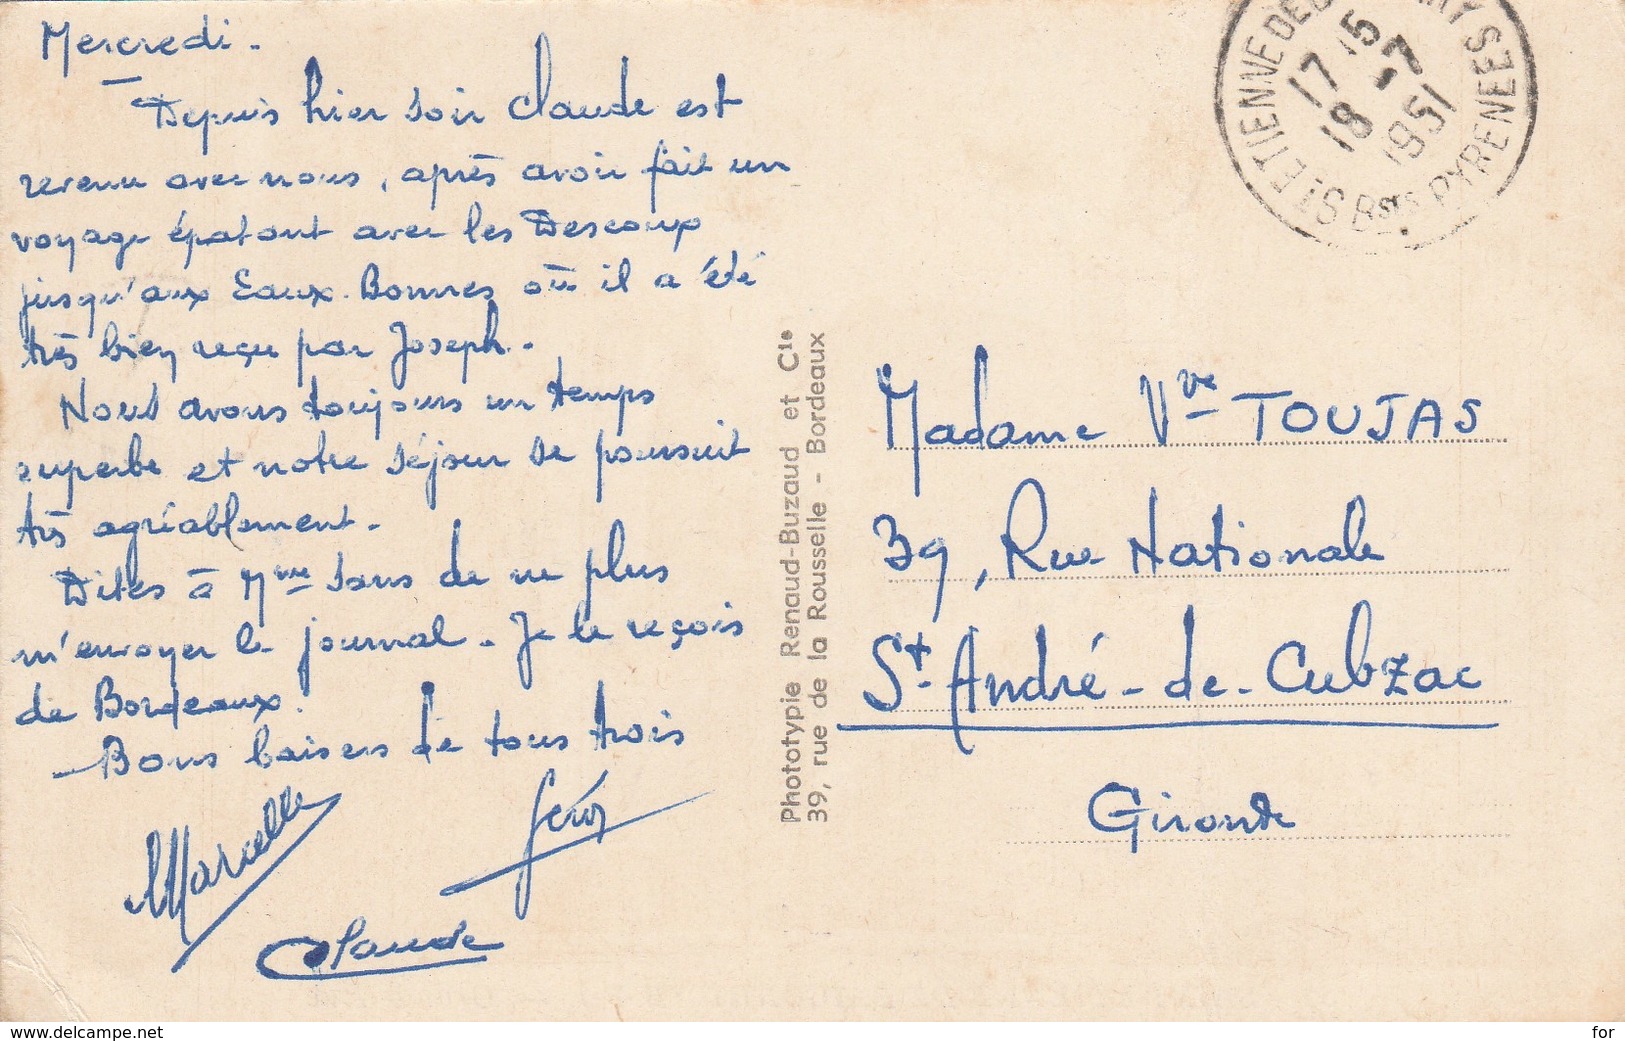 Mercredi.
Depuis hier soir Claude est
revenu avec nous, après avoir fait un
voyage épatant avec les Descoup
jusqu'aux Eaux-Bonnes où il a été
très bien reçu par Joseph.
Nous avons toujours un temps
superbe et notre séjour se poursuit
très agréablement.
Dites à Mme Sans de ne plus
m'envoyer le journal. Je le reçois
de Bordeaux.
Bons baisers de tous trois
Marcelle
Claude
Phototypie Renaud-Buzaud et Cie
39, rue de la Rousselle - Bordeaux
17 15
18 -7
1951
Bses PYRENEES
Madame Vve TOUJAS
39, Rue Nationale
St-André-de-Cubzac
Gironde
www.delcampe.net
for